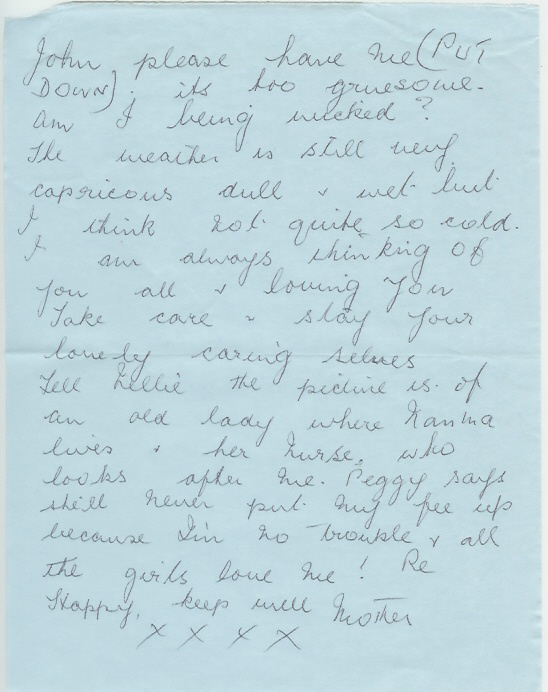 John please have me (PUT
DOWN). its too gruesome.
am I being wicked?
The weather is still very
capricous dull & wet but
I think not quite so cold.
I am always thinking of
you all & loving you
Take care & stay your
lovely caring selves
Tell Nellie the picture is of
an old lady where Nanma
lives & her nurse, who
looks after me. Peggy says
she'll never put my fee up
because I'm no trouble & all
the girls love me! Be
Happy, keep well Mother
X X X X